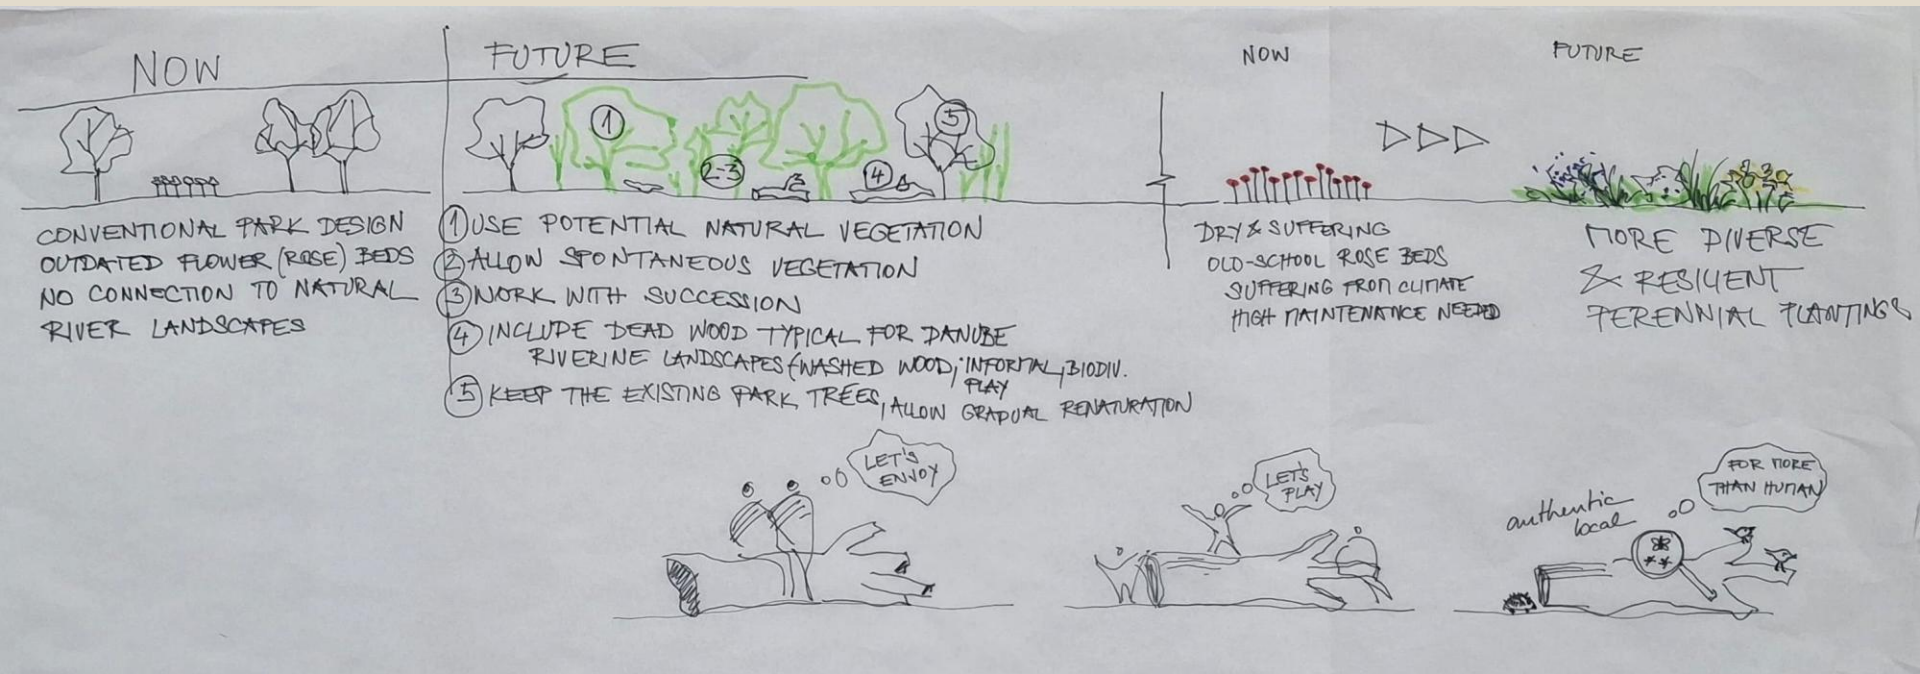 NOW
FUTURE
1
2-3
4
5
CONVENTIONAL PARK DESIGN
OUTDATED FLOWER (ROSE) BEDS
NO CONNECTION TO NATURAL
RIVER LANDSCAPES
1 USE POTENTIAL NATURAL VEGETATION
2 ALLOW SPONTANEOUS VEGETATION
3 WORK WITH SUCCESSION
4 INCLUDE DEAD WOOD TYPICAL FOR DANUBE
RIVERINE LANDSCAPES (WASHED WOOD, INFORMAL, BIODIV.
PLAY
5 KEEP THE EXISTING PARK TREES, ALLOW GRADUAL RENATURATION
NOW
FUTURE
DRY & SUFFERING
OLD-SCHOOL ROSE BEDS
SUFFERING FROM CLIMATE
HIGH MAINTENANCE NEEDED
MORE DIVERSE
& RESILIENT
PERENNIAL PLANTINGS
LET'S
ENJOY
LET'S
PLAY
authentic
local
FOR MORE
THAN HUMAN